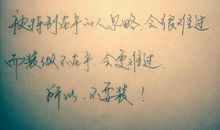 被得到在乎的人忽略,会很难过,
而装做不在乎,会更难过.
所以,不要装!